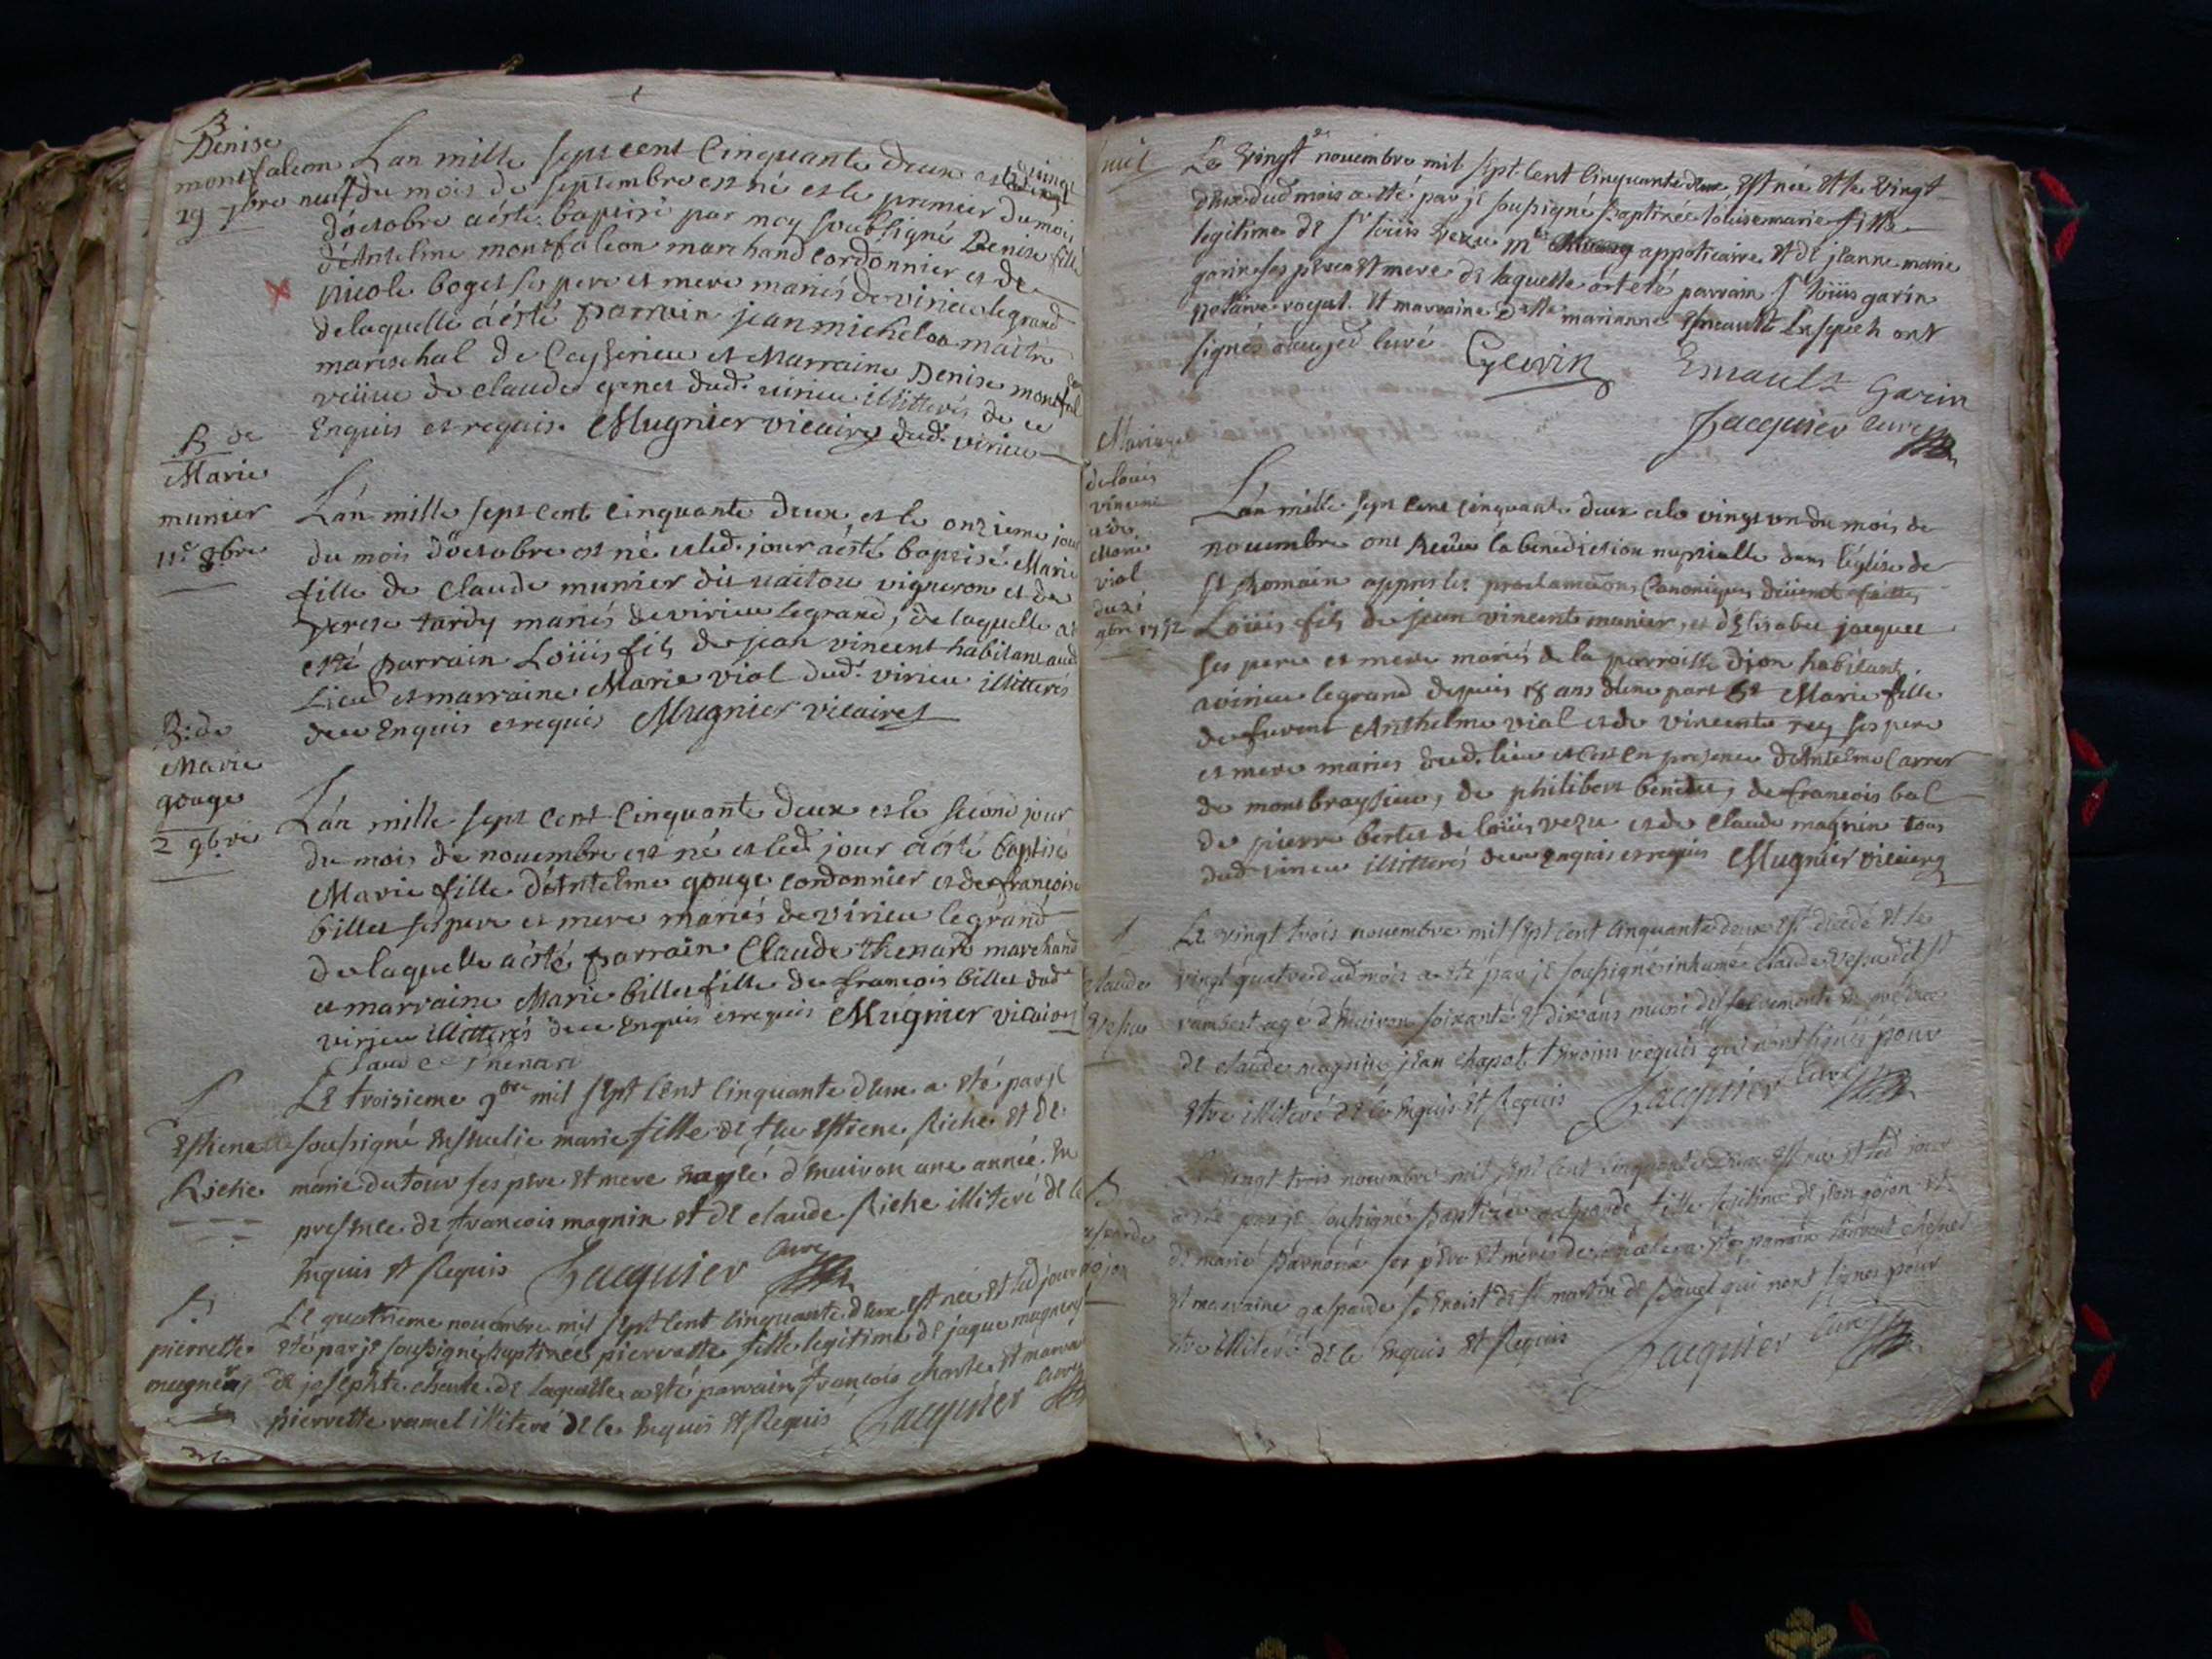 B
Denise
montfalcon
29 7bre
Lan mille sept cent Cinquante deux et le vingt
neuf du mois de septembre est né et le premier du mois
d'octobre a ésté baptisé par moy soubsigné Denise fille
d'Antelme montfalcon marchand cordonnier et de
nicole boget ses pere et mere mariés de virieu le grand
de laquelle a ésté parrain jean michelon maitre
marischal de Ceyzerieu et Marraine Denise montfal
veüve de claude genet dud. virieu illitterés de ce
Enquis et requis. Mugnier vicaire dud. virieu
B de
Marie
munier
11e 8bre
L'an mille sept cent cinquante deux et le onzieme jour
du mois d'octobre est né et led. jour a ésté baptisé Marie
fille de Claude munier dit vigneron et de
tardy mariés de virieu le grand, de laquelle a
esté parrain Loüis fils de jean vincent habitant aud
Lieu et marraine Marie viol dud. virieu illitterés
de ce Enquis et requis Mugnier vicaire
B. de
Marie
gouge
2 9bre
L'an mille sept Cent Cinquante deux et le second jour
du mois de novembre est né et led jour a ésté baptisé
Marie fille d'Antelme gouge cordonnier et de françoise
billet ses pere et mere mariés de virieu le grand
de laquelle a ésté parrain Claude thenard marchand
et marraine Marie billet fille de françois billet dud
virieu illitterés de ce Enquis et requis Mugnier vicaire
Claude thenard
S
Estiene
Riche
Le troisieme 9bre mil sept cent cinquante deux a eté par je
soussigné ensevelie marie fille de feu Estiene Riche et de
marie dutour ses pere et mere d'environ une année. En
presence de francois magnin et de claude Riche illiteré de ce
Enquis et Requis Jacquier curé
B
pierrette
Le quatrieme novembre mil sept cent cinquante deux est née et led jour
eté par je soussigné baptizée pierrette fille legitime de jaque
de josephte charle de laquelle a eté parrain francois charle et marra
pierrette ramel illiteré de ce Enquis et Requis Jacquier curé
Le vingt novembre mil sept cent cinquante deux est née et le vingt
deux dud mois a eté par je soussigné baptizée loüise marie fille
legitime de Sr loüis vezu me appoticaire et de jeanne marie
garin ses pere et mere de laquelle ont eté parrain Sr loüis garin
notaire royal. et marraine Delle marianne Enault lesquels ont
signés avec je curé
Garin
Enault
Jacquier curé
Mariage
de loüis
vincent
et de
Marie
viol
du 21
9bre 1752
L'an mille sept cent cinquante deux et le vingt un du mois de
novembre ont Reçû la benediction nuptialle dans l'église de
St Romain appres les proclamations Canoniques düement faittes
Loüis fils de jean vincent munier, et d'Elisabet jacquet
ses pere et mere mariés de la parroisse d'jon habitant
a virieu le grand depuis 18 ans d'une part et Marie fille
de furent Anthelme viol et de vincente rey ses pere
et mere mariés dud. lieu et c'est en presence d'Antelme Carrer
de montbreyzieu, de philibert benidet, de françois bal
de pierre bertet de loüis vezu et de Claude magnin tous
dud virieu illitterés de ce Enquis et requis Mugnier vicaire
S
Claude
Vesu
Le vingt trois novembre mil sept cent cinquante deux est decedé et le
vingt quatre dud mois a eté par je soussigné inhumé claude Vesu dit St
rambert agé d'environ soixante et dix ans muni des sacremente en presence
de claude magnin, jean chapot temoins requis qui n'ont signés pour
etre illiteré de ce Enquis et Requis Jacquier curé
B
gasparde
gojon
Le vingt trois novembre mil sept cent cinquante deux est née et led jour
a eté par je soussigné baptizée gasparde fille legitime de jean gojon et
de marie ses pere et mere de laquelle a eté parrain
et marraine gasparde de St martin de qui n'ont signés pour
etre illiteré de ce Enquis et Requis Jacquier curé